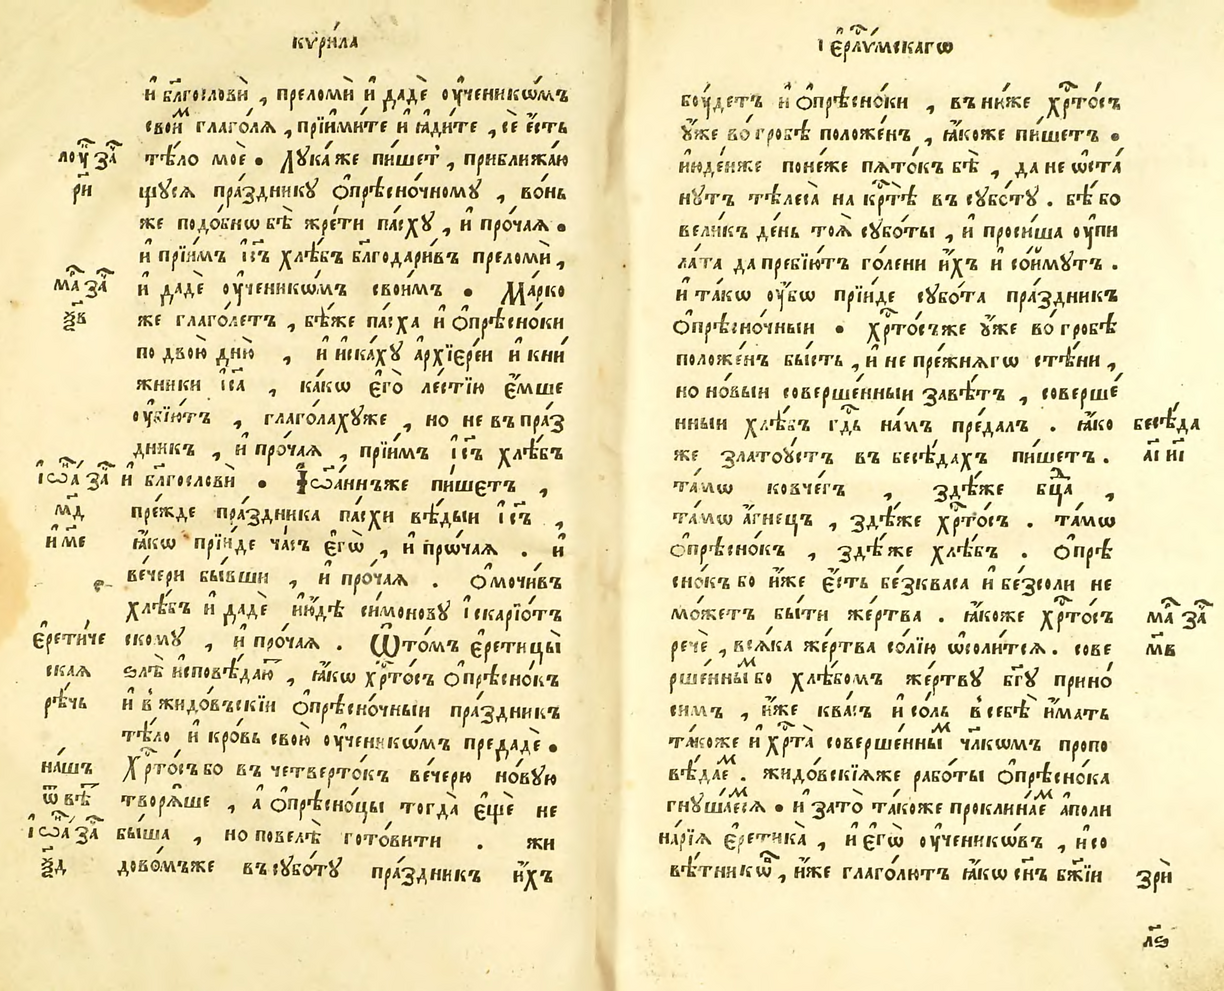 кѷри́ла
и҆ бл҃гослови̇̀ , преломѝ и҆ дадѐ ѹ҆ченикѡ́мъ
свои̑ м глаго́лѧ , прїими́те и҆ ꙗ҆ди́те , сѐ е҆́сть
лоꙋ҃ за҃
тѣ́ло моѐ . Лꙋка́же пи́шет , приближа́ю
ри҃
щꙋсѧ пра́здникꙋ ѻ҆прѣсно́чномꙋ , во́нь
же подо́бнѡ бѣ̀ жре́ти па́схꙋ , и҆ про́чаѧ .
и҆ прїи́мъ і҆с҃ъ хлѣ́бъ бл҃годари́въ преломѝ ,
ма҃ за҃
и҆ дадѐ ѹ҆ченикѡ́мъ свои́мъ . Ма́рко
ѯ҃в
же глаго́летъ , бѣ́же па́сха и҆ ѻ҆прѣсно́ки
по двою̀ дню̀ , и҆ и҆ска́хꙋ а҆рхїере́и и҆ кни́
жники і҆с҃а , ка́кѡ е҆го̀ ле́стїю е҆́мше
ѹ҆бїю́тъ , глаго́лахꙋже , но не въ пра́з
дникъ , и҆ про́чаѧ , прїи́мъ і҆с҃ъ хлѣ́бъ
і҆ѡ҃а за҃
и҆ бл҃гословѝ . І҆ѡа́ннъже пи́шетъ ,
м҃д
пре́жде пра́здника па́схи вѣ́дыи і҆с҃ъ ,
и҆ м҃е
ꙗ҆́кѡ прїи́де ча́съ е҆гѡ̀ , и҆ прѡ́чаѧ . и҆
ве́чери бы́вши , и҆ про́чаѧ . ѻ҆мочи́въ
хлѣ́бъ и҆ дадѐ и҆ю́дѣ си́моновꙋ і҆скарїо́тъ
е҆рети́че
скомꙋ , и҆ про́чаѧ . Ѿто́мъ е҆рети́цы
скаѧ
ѕлѣ̀ и҆сповѣ́даю , ꙗ҆́кѡ хр҃то́съ ѻ҆прѣсно́къ
рѣ́чь
и҆ в жидо́въскїи ѻ҆прѣсно́чныи пра́здникъ
тѣ́ло и҆ кро́вь свою̀ ѹ҆ченикѡ́мъ предадѐ .
на́шъ
Хр҃то́събо въ четверто́къ ве́черю но́вꙋю
ѿвѣ
творѧ́ше , а҆ ѻ҆прѣсно́цы тогда̀ е҆щѐ не
і҆ѡ҃а за҃
бы́ша , но повелѣ̀ гото́вити . жи
ѯ҃д
дово́мъже въ сꙋбо́тꙋ пра́здникъ и҆́хъ
і҆ е҆рл҃ꙋ́мскагѡ
бꙋ́детъ и҆ ѻ҆прѣсно́ки , въ ни́же хр҃то́съ
ᲂу҆́же во́ гробѣ поло́женъ , ꙗ҆́коже пи́шетъ .
и҆юде́иже поне́же пѧто́къ бѣ̀ , да не ѡ҆ста́
нꙋтъ тѣлеса̀ на кр҃тѣ̀ въ сꙋбо́тꙋ . бѣ́ бо
вели́къ де́нь тоѧ̀ сꙋбо́ты , и҆ проси́ша ѹ҆ пи
ла́та да пребїю́тъ го́лени и҆́хъ и҆ со́ймꙋтъ .
и҆ та́кѡ ѹ҆́бѡ прїи́де сꙋбо́та пра́здникъ
ѻ҆прѣсно́чныи . хр҃то́съже ᲂу҆́же во́ гробѣ
поло́женъ бы́сть , и҆ не пре́жнѧгѡ стѣ́ни ,
но но́выи соверше́нныи завѣ́тъ , соверше́
нныи хлѣ́бъ гдь҃ на́мъ преда́лъ . ꙗ҆́ко
бесѣ́да
же златоꙋ́стъ въ бесѣ́дахъ пи́шетъ .
а҃і и҃і
та́мѡ ковче́гъ , здѣ́же бц҃да ,
та́мѡ а҆́гнецъ , здѣ́же хр҃то́съ . та́мѡ
ѻ҆прѣсно́къ , здѣ́же хлѣ́бъ . ѻ҆прѣ
сно́къ бо и҆́же е҆́сть бе́зкваса и҆ бе́зсоли не
мо́жетъ бы́ти же́ртва . ꙗ҆́коже хр҃то́съ
ма҃ за҃
речѐ , всѧ́ка же́ртва со́лїю ѡ҆соли́тсѧ . сове
м҃в
рше́нны м бо хлѣ́бомъ же́ртвꙋ бг҃ꙋ прино́
симъ , и҆́же ква́съ и҆ со́ль в себѣ̀ и҆́мать
та́коже и҆ хр҃та̀ соверше́нны м чл҃комъ пропо
вѣ́дае м . жидо́вскїѧже рабо́ты ѻ҆прѣсно́ка
гнꙋша́е м сѧ . и҆ зато̀ та́коже проклина́е м а҆поли
на́рїѧ е҆ретика̀ , и҆ е҆гѡ̀ ѹ҆ченикѡ́въ , и҆ со
вѣ́тникѡ в , и҆́же глаго́лютъ ꙗ҆́кѡ сн҃ъ бж҃їи
зрѝ
л҃ѕ